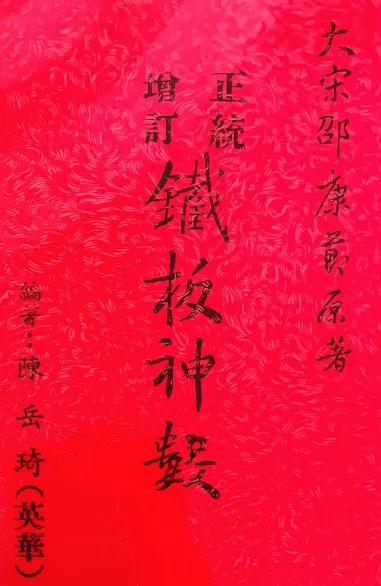 大宋邵康節原著
正統
增訂
鐵板神數
編著：陳岳琦（英華）